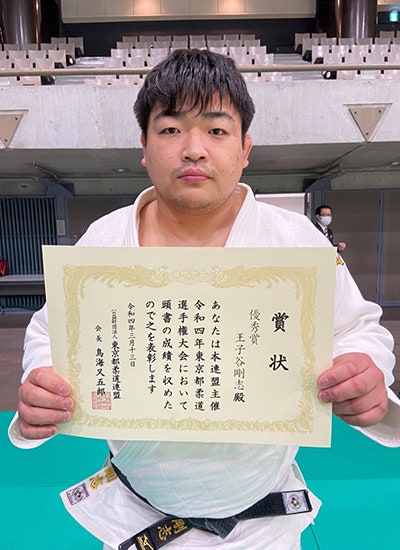 賞状
優秀賞
王子谷剛志殿
あなたは本連盟主催
令和四年東京都柔道
選手権大会において
頭書の成績を収めた
ので之を表彰します
令和四年三月十三日
公益財団法人東京都柔道連盟
会長 鳥海又五郎
剛志
剛志